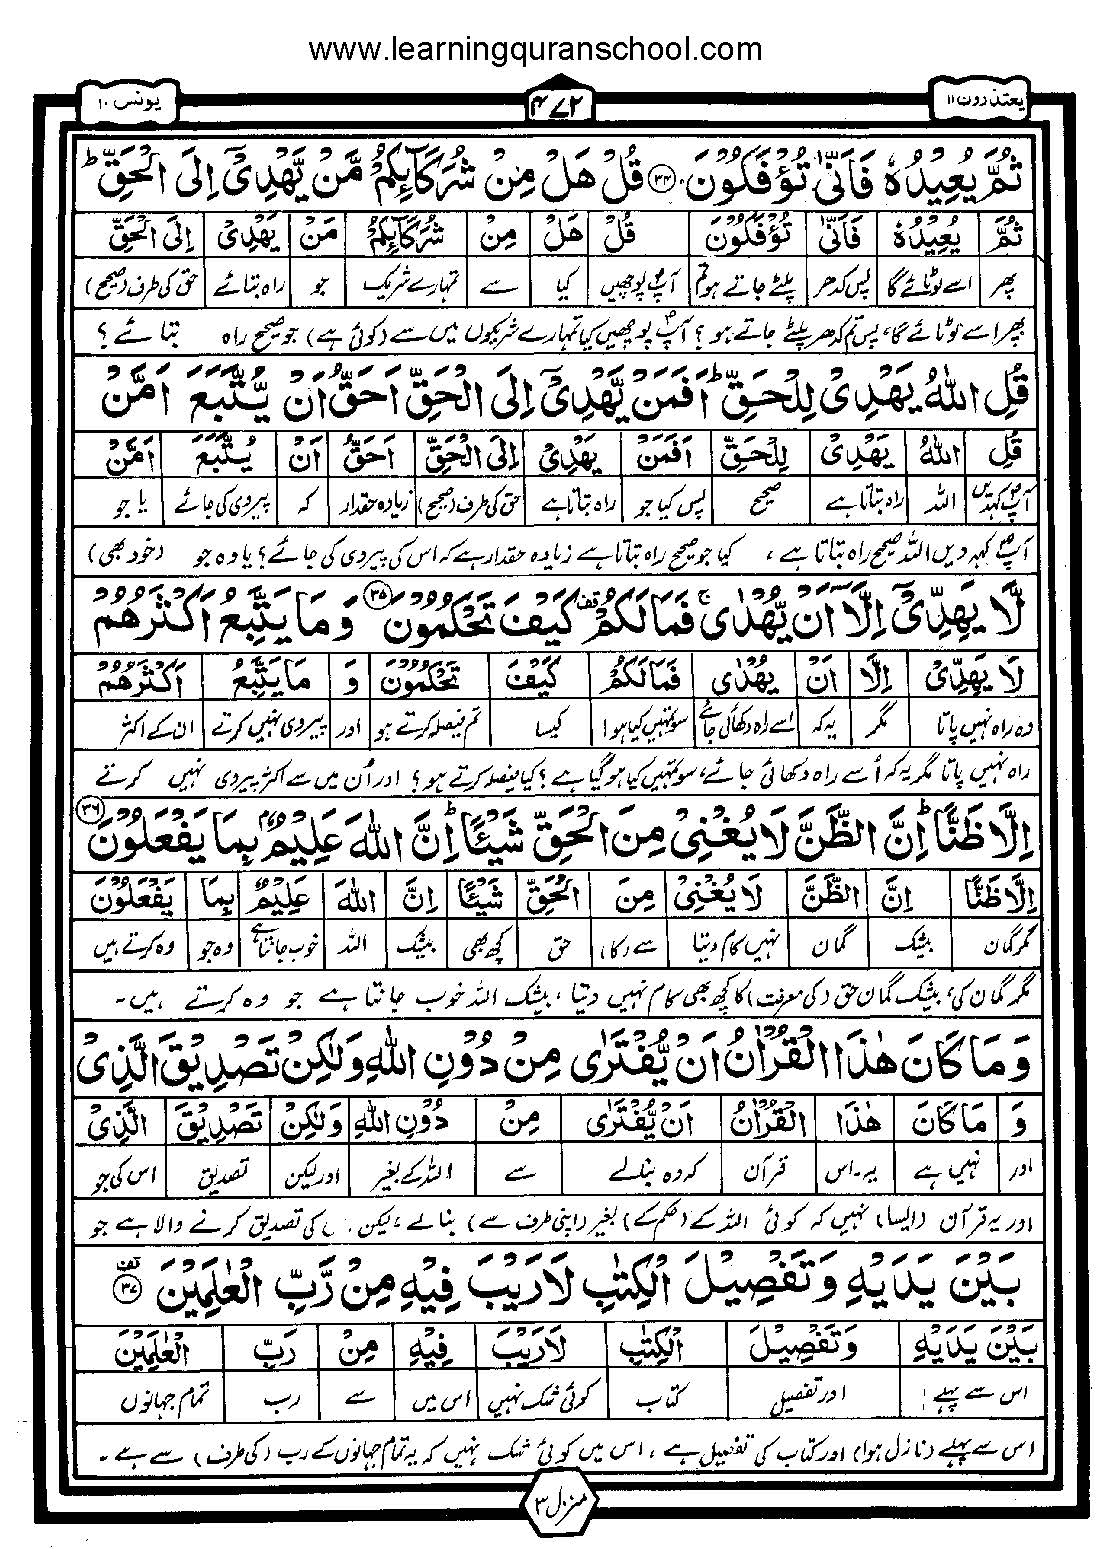 www.learningquranschool.com
یعتذرون ۱۱
۴۷۲
یونس ۱۰
ثُمَّ یُعِیْدُهٗ فَاَنّٰی تُؤْفَكُوْنَ ۳۴ قُلْ هَلْ مِنْ شُرَكَآىِٕكُمْ مَّنْ یَّهْدِیْۤ اِلَی الْحَقِّ ؕ
ثُمَّ یُعِیْدُهٗ فَاَنّٰی تُؤْفَكُوْنَ قُلْ هَلْ مِنْ شُرَكَآىِٕكُمْ مَنْ یَهْدِیْۤ اِلَی الْحَقِّ
پھر اسے لوٹائے گا پس کدھر پلٹے جاتے ہو تم آپؐ پوچھیں کیا سے تمہارے شریک جو راہ بتائے حق کی طرف (صحیح)
پھر اسے لوٹائے گا، پس تم کدھر پلٹے جاتے ہو ؟ آپؐ پوچھیں کیا تمہارے شریکوں میں سے (کوئی ہے) جو صحیح راہ بتائے ؟
قُلِ اللّٰهُ یَهْدِیْ لِلْحَقِّ ؕ اَفَمَنْ یَّهْدِیْۤ اِلَی الْحَقِّ اَحَقُّ اَنْ یُّتَّبَعَ اَمَّنْ
قُلِ اللّٰهُ یَهْدِیْ لِلْحَقِّ اَفَمَنْ یَهْدِیْۤ اِلَی الْحَقِّ اَحَقُّ اَنْ یُتَّبَعَ اَمَّنْ
آپؐ کہدیں اللہ راہ بتاتا ہے صحیح پس کیا جو راہ بتاتا ہے حق کی طرف (صحیح) زیادہ حقدار کہ پیروی کی جائے یا جو
آپؐ کہہ دیں اللہ صحیح راہ بتاتا ہے ، کیا جو صحیح راہ بتاتا ہے زیادہ حقدار ہے کہ اس کی پیروی کی جائے ؟ یا وہ جو (خود بھی)
لَّا یَهِدِّیْۤ اِلَّاۤ اَنْ یُّهْدٰی ۚ فَمَا لَكُمْ كَیْفَ تَحْكُمُوْنَ ۳۵ وَ مَا یَتَّبِعُ اَكْثَرُهُمْ
لَا یَهِدِّیْۤ اِلَّا اَنْ یُهْدٰی فَمَا لَكُمْ كَیْفَ تَحْكُمُوْنَ وَ مَا یَتَّبِعُ اَكْثَرُهُمْ
وہ راہ نہیں پاتا مگر یہ کہ اسے راہ دکھائی جائے سو تمہیں کیا ہوا کیسا تم فیصلہ کرتے ہو اور پیروی نہیں کرتے ان کے اکثر
راہ نہیں پاتا مگر یہ کہ اُسے راہ دکھائی جائے، سو تمہیں کیا ہو گیا ہے ؟ کیسا فیصلہ کرتے ہو ؟ اور اُن میں سے اکثر پیروی نہیں کرتے
اِلَّا ظَنًّا ؕ اِنَّ الظَّنَّ لَا یُغْنِیْ مِنَ الْحَقِّ شَیْـًٔا ؕ اِنَّ اللّٰهَ عَلِیْمٌۢ بِمَا یَفْعَلُوْنَ ۳۶
اِلَّا ظَنًّا اِنَّ الظَّنَّ لَا یُغْنِیْ مِنَ الْحَقِّ شَیْـًٔا اِنَّ اللّٰهَ عَلِیْمٌ بِمَا یَفْعَلُوْنَ
مگر گمان بیشک گمان نہیں کام دیتا سے (کا) حق کچھ بھی بیشک اللہ خوب جانتا ہے وہ جو وہ کرتے ہیں
مگر گمان کی، بیشک گمان حق (کی معرفت) کا کچھ بھی کام نہیں دیتا ، بیشک اللہ خوب جانتا ہے جو وہ کرتے ہیں۔
وَ مَا كَانَ هٰذَا الْقُرْاٰنُ اَنْ یُّفْتَرٰی مِنْ دُوْنِ اللّٰهِ وَ لٰكِنْ تَصْدِیْقَ الَّذِیْ
وَ مَا كَانَ هٰذَا الْقُرْاٰنُ اَنْ یُّفْتَرٰی مِنْ دُوْنِ اللّٰهِ وَلٰكِنْ تَصْدِیْقَ الَّذِیْ
اور نہیں ہے یہ۔اس قرآن کہ وہ بنالے سے اللہ کے بغیر اور لیکن تصدیق اس کی جو
اور یہ قرآن (ایسا) نہیں کہ کوئی اللہ کے (حکم کے) بغیر (اپنی طرف سے) بنالے ، لیکن کی تصدیق کرنے والا ہے جو
بَیْنَ یَدَیْهِ وَ تَفْصِیْلَ الْكِتٰبِ لَا رَیْبَ فِیْهِ مِنْ رَّبِّ الْعٰلَمِیْنَ ۳۷
بَیْنَ یَدَیْهِ وَتَفْصِیْلَ الْكِتٰبِ لَا رَیْبَ فِیْهِ مِنْ رَبِّ الْعٰلَمِیْنَ
اس سے پہلے اور تفصیل کتاب کوئی شک نہیں اس میں سے رب تمام جہانوں
اس سے پہلے (نازل ہوا) اور کتاب کی تفصیل ہے ، اس میں کوئی شک نہیں کہ یہ تمام جہانوں کے رب (کی طرف) سے ہے ۔
منزل ۳